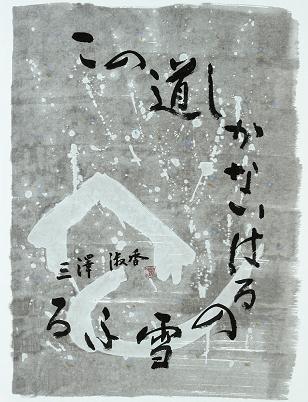 この道しかないはるの雪ふる
三澤 淑香